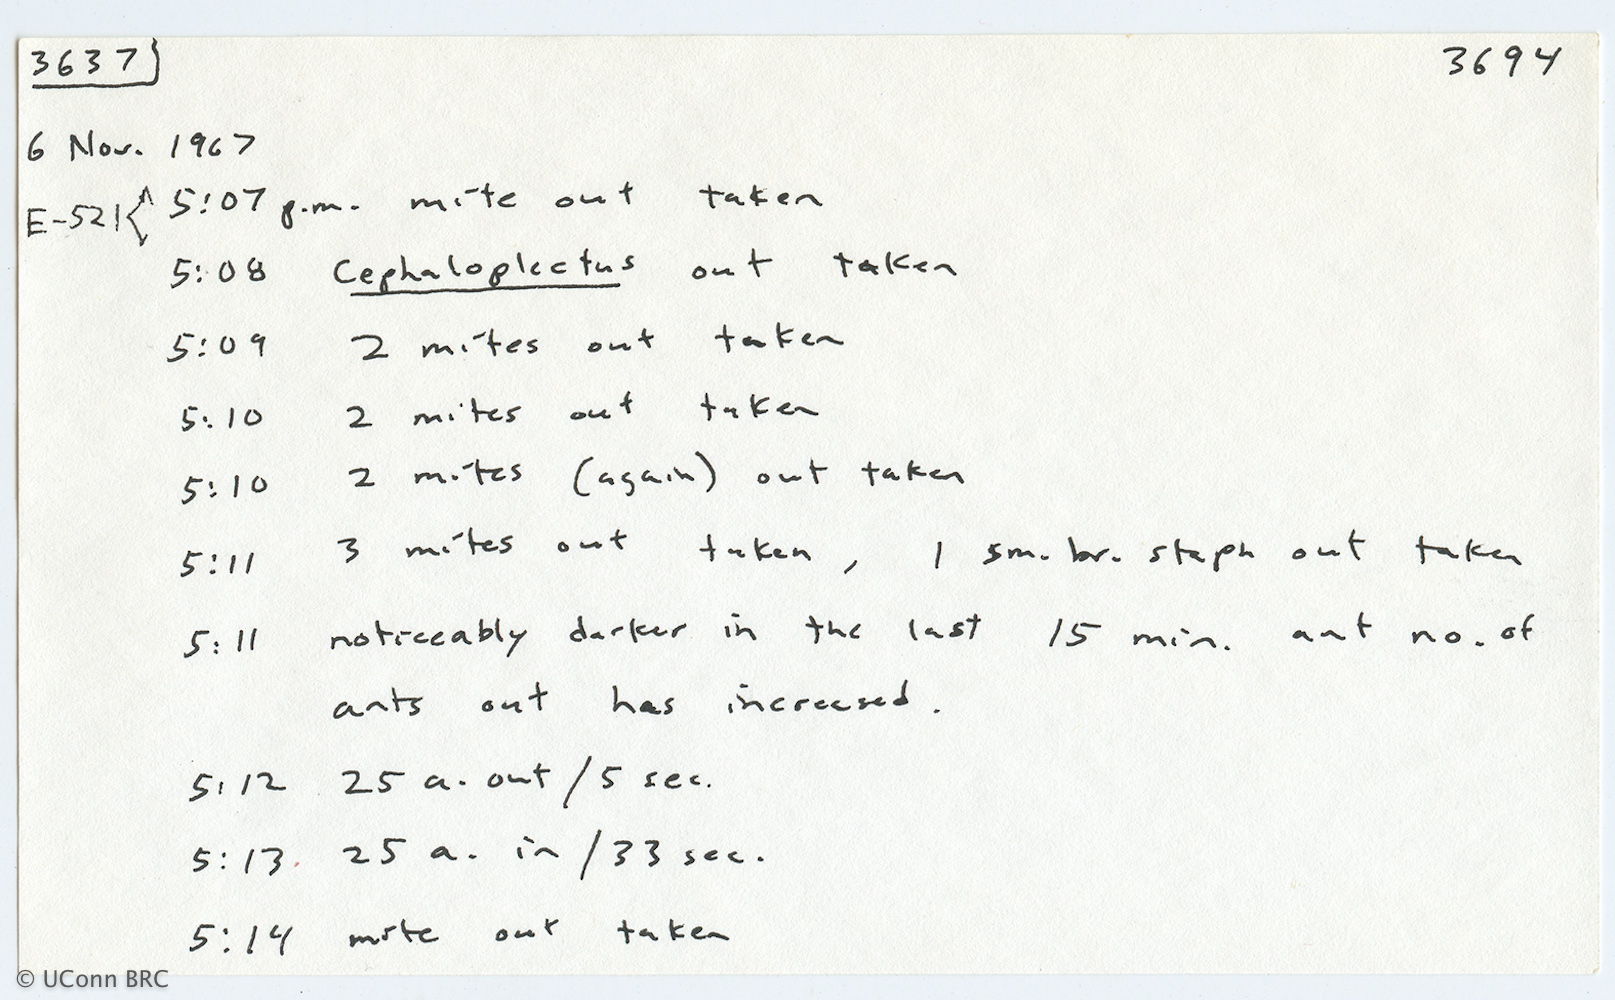 3637 3694
6 Nov. 1967
E-521 5:07 p.m. mite out taken
5:08 Cephaloplectus out taken
5:09 2 mites out taken
5:10 2 mites out taken
5:10 2 mites (again) out taken
5:11 3 mites out taken, 1 sm. br. staph out taken
5:11 noticeably darker in the last 15 min. ant no. of
ants out has increased.
5:12 25 a. out /5 sec.
5:13. 25 a. in /33 sec.
5:14 mite out taken
© UConn BRC